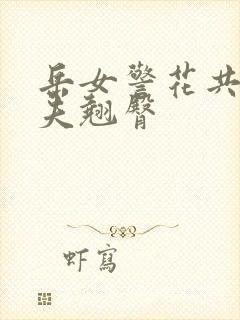 岳女警花共
夫翘臀
虾写